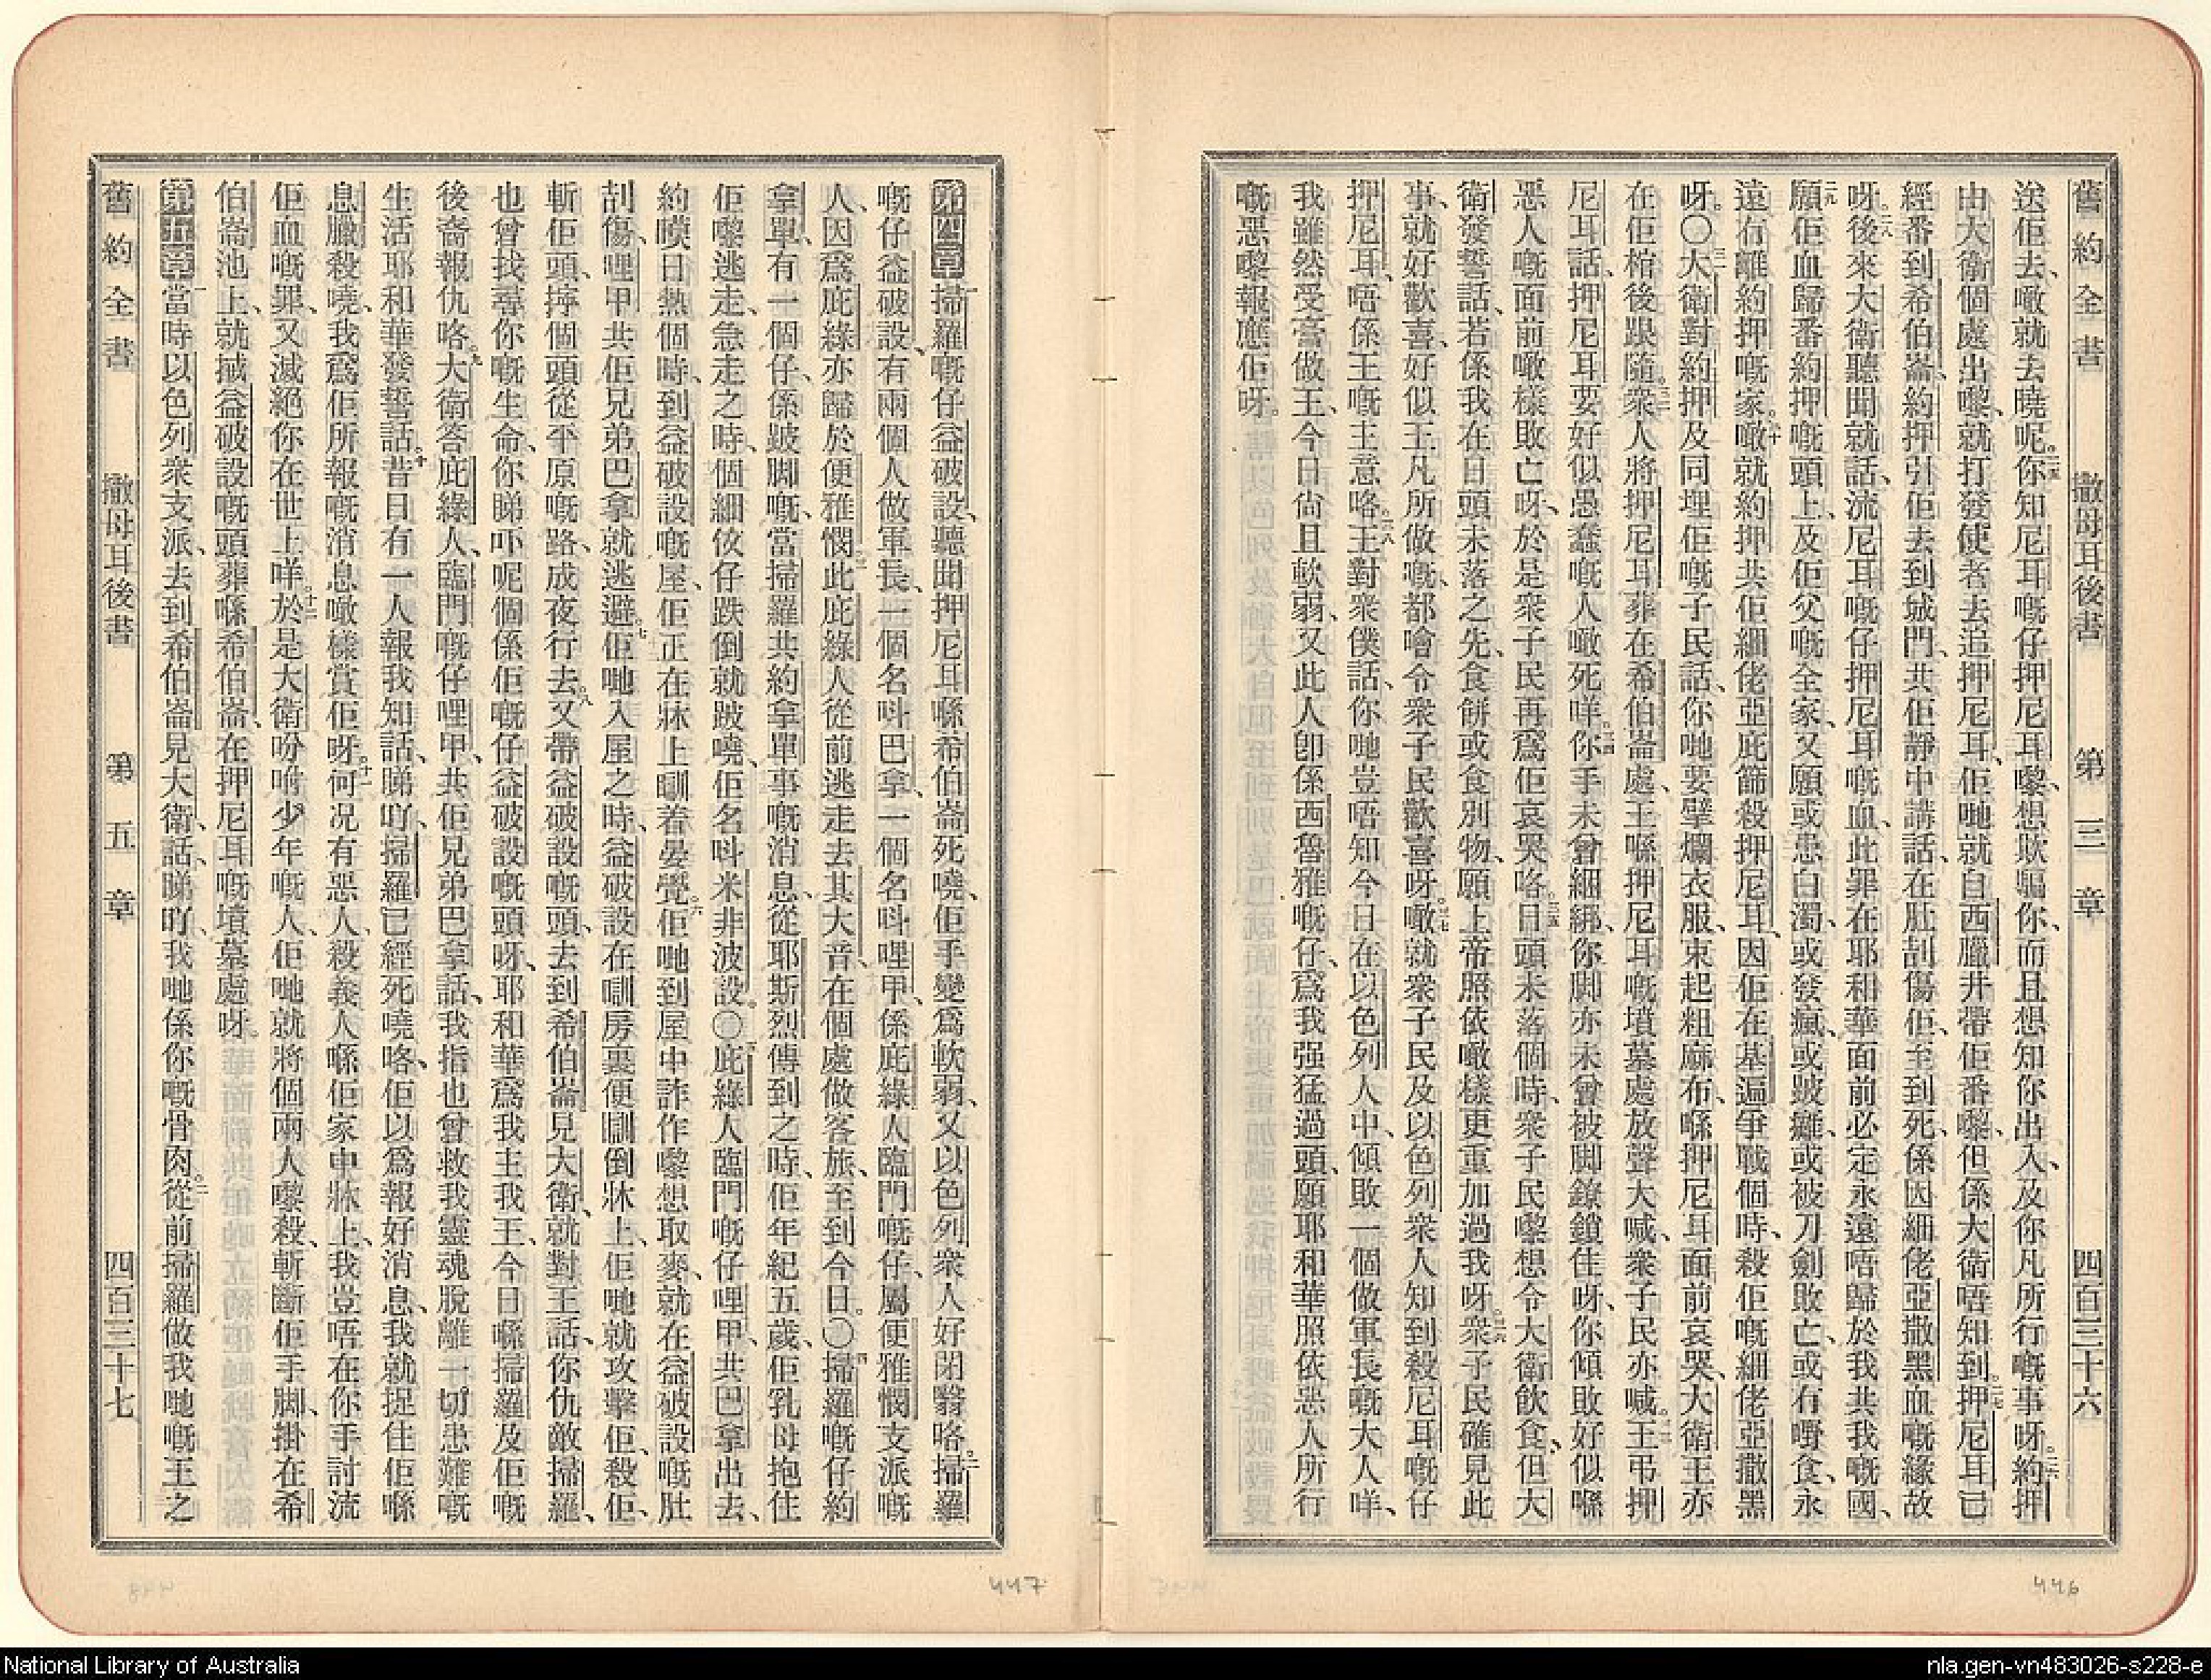 舊約全書　撒母耳後書　第三章　四百三十六
送佢去、噉就去曉呢。二五你知尼耳嘅仔押尼耳嚟、想欺騙你、而且想知你出入、及你凡所行嘅事呀。二六約押
由大衛個處出嚟、就打發使者去追押尼耳、佢哋就自西臘井帶佢番嚟、但係大衛唔知到。二七押尼耳已
經番到希伯崙、約押引佢去到城門、共佢靜中講話、在肚刮傷佢、至到死、係因細佬亞撒黑血嘅緣故
呀。二八後來大衛聽聞就話、流尼耳嘅仔押尼耳嘅血、此罪在耶和華面前必定永遠唔歸於我共我嘅國、
二九願佢血歸番約押嘅頭上、及佢父嘅全家、又願或患白濁、或發瘋、或跛癱、或被刀劍敗亡、或冇嘢食、永
遠冇離約押嘅家。三十噉就約押共佢細佬亞庇篩殺押尼耳、因佢在基遍爭戰個時、殺佢嘅細佬亞撒黑
呀。〇三一大衛對約押及同埋佢嘅子民話、你哋要擘爛衣服、束起粗麻布、喺押尼耳面前哀哭、大衛王亦
在佢棺後跟隨。三二衆人將押尼耳葬在希伯崙處、王喺押尼耳嘅墳墓處放聲大喊、衆子民亦喊。三三王弔押
尼耳話、押尼耳要好似愚蠢嘅人噉死咩。三四你手未曾綑綁、你脚亦未曾被脚鐐鎖住呀、你傾敗好似喺
惡人嘅面前噉樣敗亡呀、於是衆子民再爲佢哀哭咯。三五日頭未落個時、衆子民嚟想令大衛飲食、但大
衛發誓話、若係我在日頭未落之先、食餅或食別物、願上帝照依噉樣更重加過我呀。三六衆子民確見此
事、就好歡喜、好似王凡所做嘅、都噲令衆子民歡喜呀。三七噉就衆子民及以色列衆人知到殺尼耳嘅仔
押尼耳、唔係王嘅主意咯。三八王對衆僕話、你哋豈唔知今日在以色列人中、傾敗一個做軍長嘅大人咩、
我雖然受膏做王、今日尙且軟弱、又此人卽係西魯雅嘅仔、爲我强猛過頭、願耶和華照依惡人所行
嘅惡嚟報應佢呀。
446
第四章一掃羅嘅仔益破設、聽聞押尼耳喺希伯崙死嘵、佢手變爲軟弱、又以色列衆人好閉翳咯。二掃羅
嘅仔益破設、有兩個人做軍長、一個名呌巴拿、一個名呌哩甲、係庇綠人臨門嘅仔、屬便雅憫支派嘅
人、因爲庇綠亦歸於便雅憫。三此庇綠人從前逃走去其大音、在個處做客旅、至到今日。〇四掃羅嘅仔約
拿單、有一個仔、係跛脚嘅、當掃羅共約拿單事嘅消息、從耶斯烈傳到之時、佢年紀五歲、佢乳母抱住
佢嚟逃走、急走之時、個細佼仔跌倒就跛嘵、佢名呌米非波設。〇五庇綠人臨門嘅仔哩甲、共巴拿出去、
約嘆日熱個時、到益破設嘅屋、佢正在牀上瞓着晏覺。六佢哋到屋中詐作嚟想取麥、就在益破設嘅肚
刮傷、哩甲共佢兄弟巴拿就逃避。七佢哋入屋之時、益破設在瞓房裏便瞓倒牀上、佢哋就攻擊佢、殺佢、
斬佢頭、擰個頭從平原嘅路、成夜行去。八又帶益破設嘅頭、去到希伯崙見大衛、就對王話、你仇敵掃羅、
也曾找尋你嘅生命、你睇吓呢個係佢嘅仔益破設嘅頭呀、耶和華爲我主我王、今日喺掃羅及佢嘅
後裔報仇咯。九大衛答庇綠人、臨門嘅仔哩甲、共佢兄弟巴拿話、我指也曾救我靈魂脫離一切患難嘅
生活耶和華發誓話。十昔日有一人報我知話、睇吖、掃羅已經死嘵咯、佢以爲報好消息、我就捉住佢喺
息臘殺嘵、我爲佢所報嘅消息噉樣賞佢呀。十一何况有惡人、殺義人喺佢家中牀上、我豈唔在你手討流
佢血嘅罪、又滅絕你在世上咩。十二於是大衛吩咐少年嘅人、佢哋就將個兩人嚟殺、斬斷佢手脚、掛在希
伯崙池上、就㨢益破設嘅頭葬喺希伯崙、在押尼耳嘅墳墓處呀。
第五章一當時以色列衆支派、去到希伯崙見大衛、話、睇吖、我哋係你嘅骨肉。二從前掃羅做我哋嘅王之
舊約全書　撒母耳後書　第五章　四百三十七
447
National Library of Australia
nla.gen-vn483026-s228-e